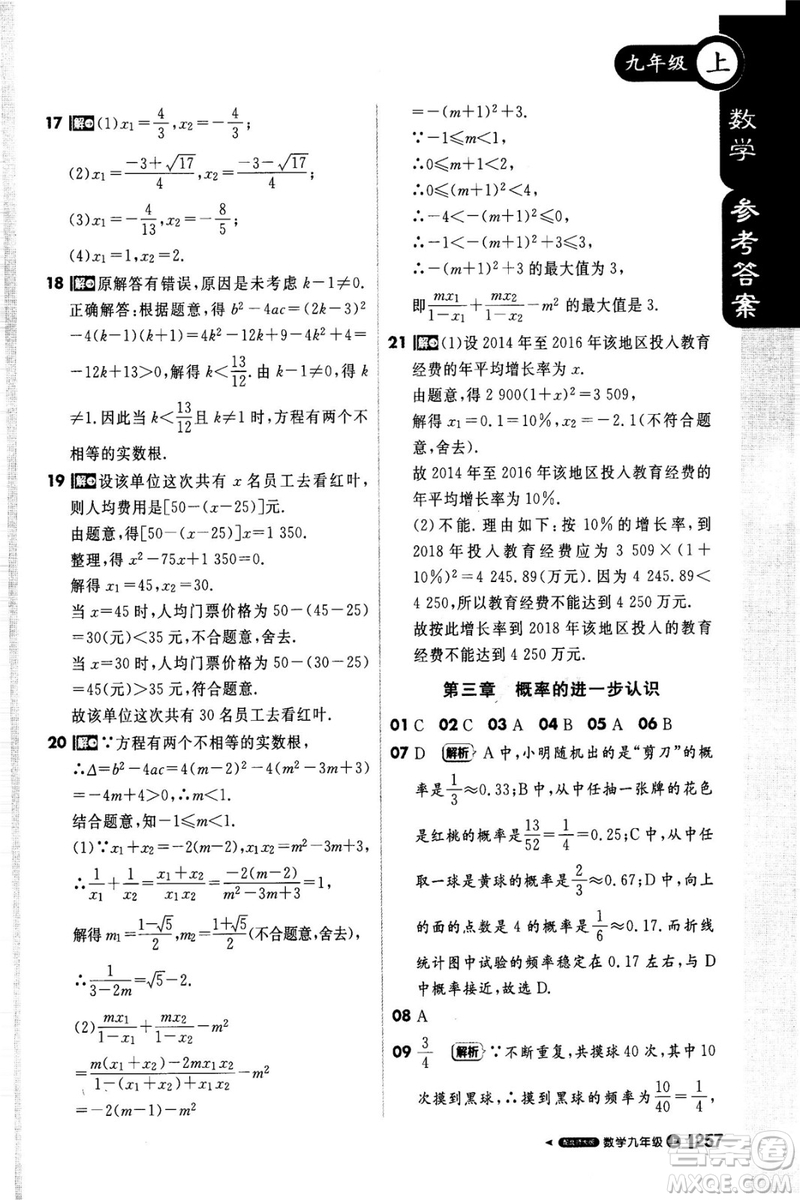 九年级 上
数学 参考答案
17 解 (1)x₁=4/3,x₂=-4/3;
(2)x₁=(-3+√17)/4,x₂=(-3-√17)/4;
(3)x₁=-4/13,x₂=-8/5;
(4)x₁=1,x₂=2.
18 解 原解答有错误,原因是未考虑 k-1≠0.
正确解答:根据题意,得 b²-4ac=(2k-3)²
-4(k-1)(k+1)=4k²-12k+9-4k²+4=
-12k+13>0,解得 k<13/12.又∵k-1≠0,∴k
≠1.因此当 k<13/12且 k≠1 时,方程有两个不
相等的实数根.
19 解 设该单位这次共有 x 名员工去看红叶,
则人均费用是[50-(x-25)]元.
由题意,得[50-(x-25)]x=1 350.
整理,得 x²-75x+1 350=0.
解得 x₁=45,x₂=30.
当 x=45 时,人均门票价格为50-(45-25)
=30(元)<35,不合题意,舍去.
当 x=30 时,人均门票价格为50-(30-25)
=45(元)>35,符合题意.
故该单位这次共有 30 名员工去看红叶.
20 解 ∵方程有两个不相等的实数根,
∴Δ=b²-4ac=4(m-2)²-4(m²-3m+3)
=-4m+4>0,∴m<1.
结合题意,知-1≤m<1.
(1)∵x₁+x₂=-2(m-2),x₁x₂=m²-3m+3,
∴1/x₁+1/x₂=(x₁+x₂)/x₁x₂=-2(m-2)/(m²-3m+3)=1,
解得 m₁=(1-√5)/2,m₂=(1+√5)/2(不合题意,舍去).
∴1/(3-2m)=√5-2.
(2)mx₁/(1-x₁)+mx₂/(1-x₂)-m²
=[m(x₁+x₂)-2mx₁x₂]/[1-(x₁+x₂)+x₁x₂]-m²
=-2(m-1)-m²
=-(m+1)²+3.
∵-1≤m<1,
∴0≤m+1<2.
∴0≤(m+1)²<4.
∴-4<-(m+1)²≤0.
∴-1<-(m+1)²+3≤3.
∴-(m+1)²+3 的最大值为 3,
即mx₁/(1-x₁)+mx₂/(1-x₂)-m² 的最大值是 3.
21 解 (1)设 2014 年至 2016 年该地区投入教育
经费的年平均增长率为 x.
由题意,得 2 900(1+x)²=3 509,
解得 x₁=0.1=10%,x₂=-2.1(不符合题
意,舍去).
故 2014 年至 2016 年该地区投入教育经费的
年平均增长率为 10%.
(2)不能. 理由如下:按 10%的增长率,到
2018 年投入教育经费应为 3 509×(1+
10%)²=4 245.89(万元). 因为 4 245.89<
4 250,所以教育经费不能达到 4 250 万元.
故按此增长率到 2018 年该地区投入的教育
经费不能达到 4 250 万元.
第三章 概率的进一步认识
01 C 02 C 03 A 04 B 05 A 06 B
07 D 解析 A 中,小明随机出的是“剪刀”的概
率是1/3≈0.33;B 中,任意抽一张牌的花色
是红桃的概率13/52=1/4=0.25;C 中,任
取一球是黄球的概率是2/3≈0.67;D 中,向上
的面的点数是 4 的概率为1/6≈0.17. 而折线
统计图中试验的频率稳定在 0.17 左右,与 D
中概率接近,故选 D.
08 A
09 3/4 解析 ∵不断重复,共摸球40 次,其中 10
次摸到黑球,∴摸到黑球的频率为10/40=1/4,
配北师大版 数学九年级 上 257
答案圈
MXQE.COM